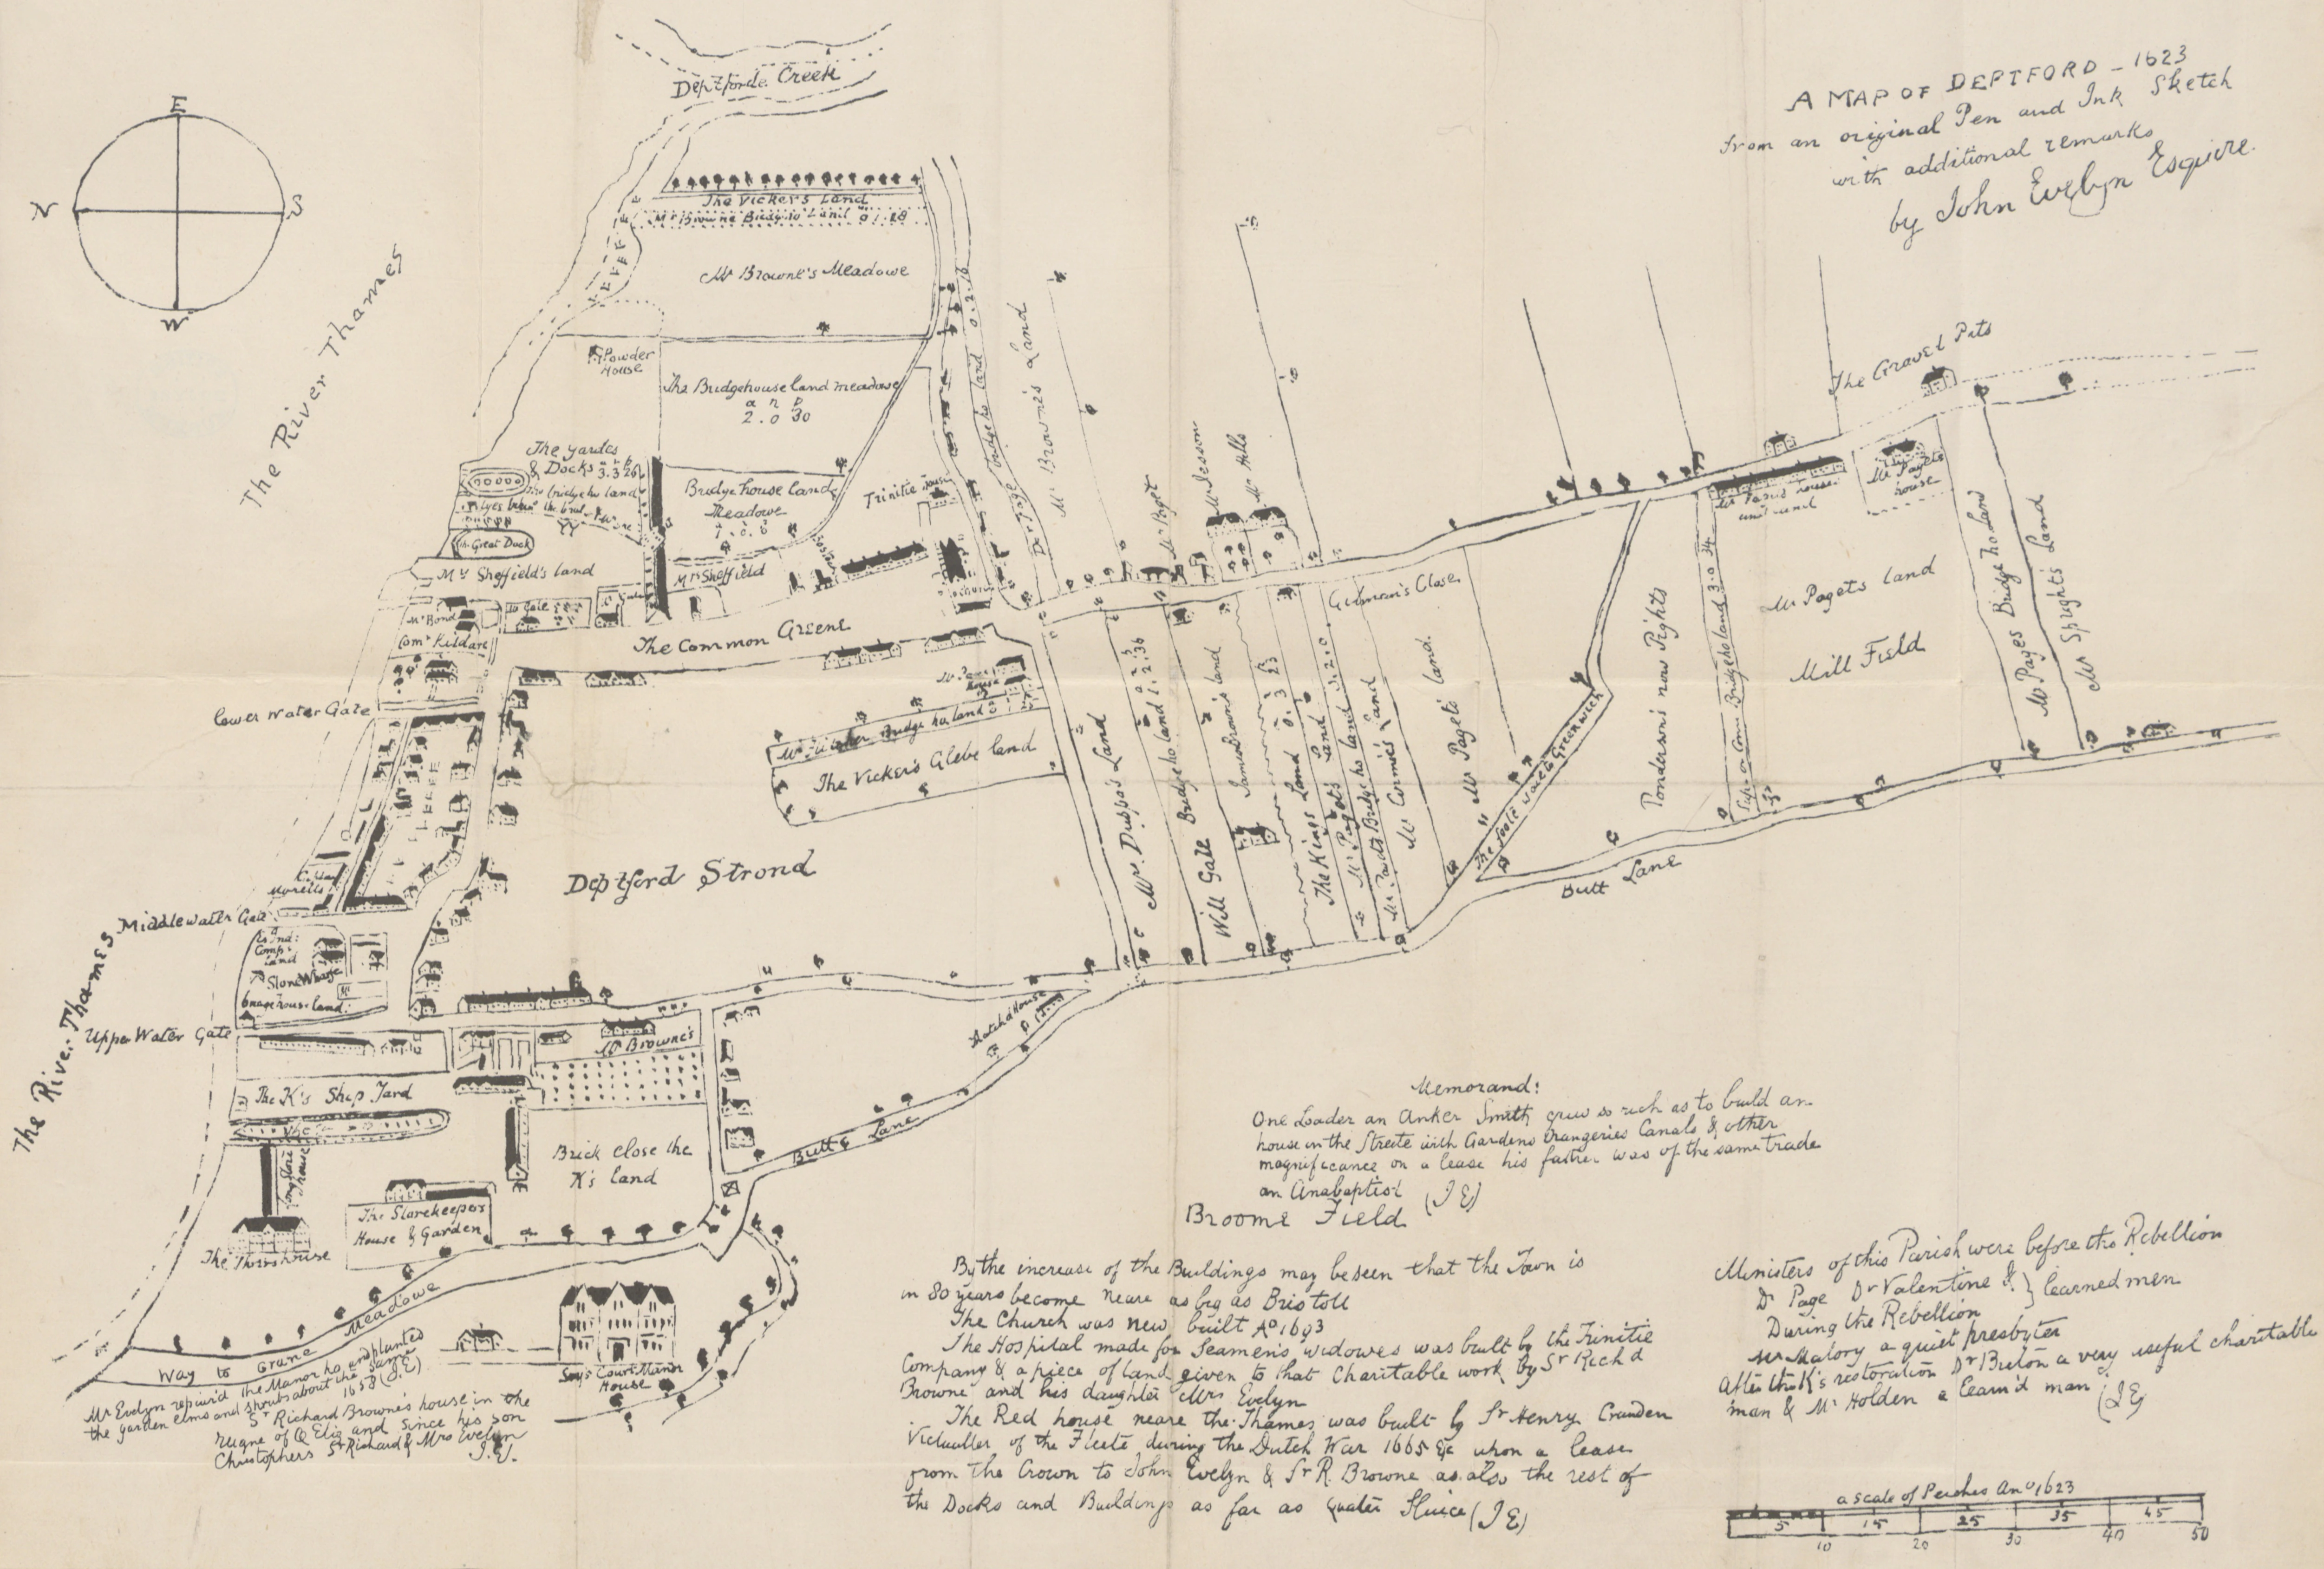 A MAP OF DEPTFORD - 1623
from an original Pen and Ink Sketch
with additional remarks
by John Evelyn Esquire.
E
N
S
W
Deptforde Creek
The River Thames
The Vicker's Land
Mr Browne Bridg ho Land
Mr Browne's Meadowe
Powder
House
The Bridgehouse land meadowe
2.0 30
The yardes
& Docks
Great Dock
Bridge house land
Meadowe
Trinitie house
Mr Sheffield's land
Mr Sheffield
Mr Bond
Com Kildare
The Common Greene
Lower Water Gate
Dr Page Bridge ho land 0.2.16
Mr Browne's Land
Mr Paget
Mr Jesson
Mr Hills
The Gravel Pits
Mr Pagets
house
Gilman's Close
Mr Pagets land
Mill Field
Mr Pages Bridge ho Land
Mr Sprights Land
Bridge ho land 3.0.34
Ponderson's now Pights
The foole waie to Greenwich
Mr Pagets land.
Mr Cormes's land
Bridge ho land
The Kings Land
James Brown's land
Will Gale Bridge ho land 1.2.36
Mrs Duppa's Land
Bridge ho land
The Vicker's Glebe land
Deptford Strond
Butt Lane
Middle water Gate
Comp
land
Stone Wharfe
house land
Upper Water Gate
The River Thames
Mr Browne's
The K's Ship Yard
Long Store
House
Brick close the
K's land
Butt Lane
The Storekeepers
House & Garden
Way to Crane Meadowe
Says Court Manor
House
Mr Evelyn repair'd the Manor ho. and planted
the garden elms and shrubs about the same
1658 (J.E)
Sr Richard Browne's house in the
reigne of Q Eliz and since his son
Christophers Sr Richard & Mrs Evelyn
J.E.
Memorand:
One Loader an Anker Smith grew so rich as to build an
house in the Streete with Gardens Orangeries Canals & other
magnificance on a lease his father was of the same trade
an Anabaptist (J E)
Broome Field
By the increase of the Buildings may be seen that the Town is
in 80 years become neare as big as Bristoll
The Church was new built Ao 1693
The Hospital made for Seamen's widowes was built by the Trinitie
Company & a piece of land given to that Charitable work by Sr Rich'd
Browne and his daughter Mrs Evelyn
The Red house neare the Thames was built by Sr Henry
Victualler of the Fleete during the Dutch War 1665 &c upon a lease
from the Crown to John Evelyn & Sr R. Browne as also the rest of
the Docks and Buildings as far as Sluice (J E)
Ministers of this Parish were before the Rebellion
Dr Page Dr Valentine &. } learned men
During the Rebellion
Mr Malory a quiet presbyter
After the K's restoration Dr Breton a very useful charitable
man & Mr Holden a learn'd man (J E)
a scale of Perches Ano 1623
5 15 25 35 45
10 20 30 40 50